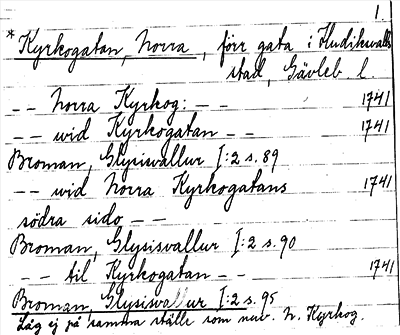 1.
*Kyrkogatan, Norra, förr gata i Hudiksvalls
stad, Gävleb l.
-- Norra Kyrkog: -- 1741
-- wid Kyrkogatan -- 1741
Broman, Glysisvallur I:2 s. 89
-- wid Norra Kyrkogatans 1741
södra sido --
Broman, Glysisvallur I:2 s. 90
-- til Kyrkogatan -- 1741
Broman, Glysisvallur I:2 s. 95
Låg ej på samma ställe som nuv. N. Kyrkog.